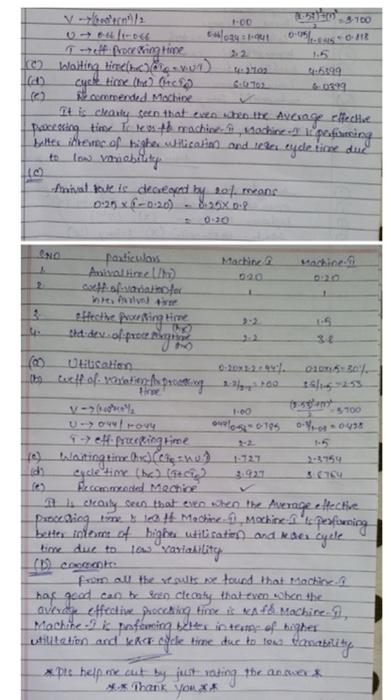 V → (1.00²+(1)²)/2 1.00 (2.53)²+(1)²/2 = 3.700
U → 0.66/1-0.66 0.66/0.34 = 1.941
T → eff processing time 2.2 1.5
(c) Waiting time (hrs) 4.2702 4.5399
(d) cycle time (hr) 6.4702 6.0399
(e) Recommended Machine ✓
It is clearly seen that even when the Average effective
processing time is less machine-II, Machine-I is performing
better interms of higher utilisation and lesser cycle time due
to low variability
(C)
Arrival Rate is decreased by 20% means
0.25 × (1-0.20) = 0.25 × 0.8
= 0.20
S.NO particulars Machine I Machine-II
1. Arrival time (/hr) 0.20 0.20
2. coeff-of-variation for 1 1
inter Arrival time
3. effective processing time 2.2 1.5
4. std-dev-of-processing time 2.2 3.8
(a) Utilisation 0.20×2.2=44% 0.20×1.5=30%
(b) coeff-of-variation for processing 2.2/2.2=1.00 3.8/1.5=2.53
time
V → 1.00 (2.53)²+(1)²/2 = 3.700
U → 0.44/1-0.44
T → eff-processing time 2.2 1.5
(c) Waiting time (hr) 1.727 2.3754
(d) cycle time (hr) 3.927 3.8764
(e) Recommended Machine ✓
It is clearly seen that even when the Average effective
processing time is less Machine-II, Machine-I is performing
better interms of higher utilisation and lesser cycle
time due to low variability
(D) comments
from all the results we found that Machine-I
has good can be seen clearly that even when the
average effective processing time is less Machine-II,
Machine-I is performing better in terms of higher
utilitation and lesser cycle time due to low variability
*pls help me out by just rating the answer*
** Thank you **